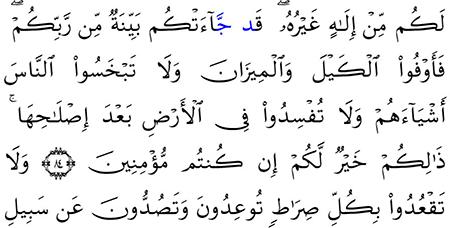 لَكُم مِّنْ إِلَٰهٍ غَيْرُهُۥ ۖ قَد جَّآءَتْكُم بَيِّنَةٌ مِّن رَّبِّكُمْ ۖ
فَأَوْفُوا۟ ٱلْكَيْلَ وَٱلْمِيزَانَ وَلَا تَبْخَسُوا۟ ٱلنَّاسَ
أَشْيَآءَهُمْ وَلَا تُفْسِدُوا۟ فِى ٱلْأَرْضِ بَعْدَ إِصْلَٰحِهَا ۚ
ذَٰلِكُمْ خَيْرٌ لَّكُمْ إِن كُنتُم مُّؤْمِنِينَ ٨٤ وَلَا
تَقْعُدُوا۟ بِكُلِّ صِرَٰطٍ تُوعِدُونَ وَتَصُدُّونَ عَن سَبِيلِ